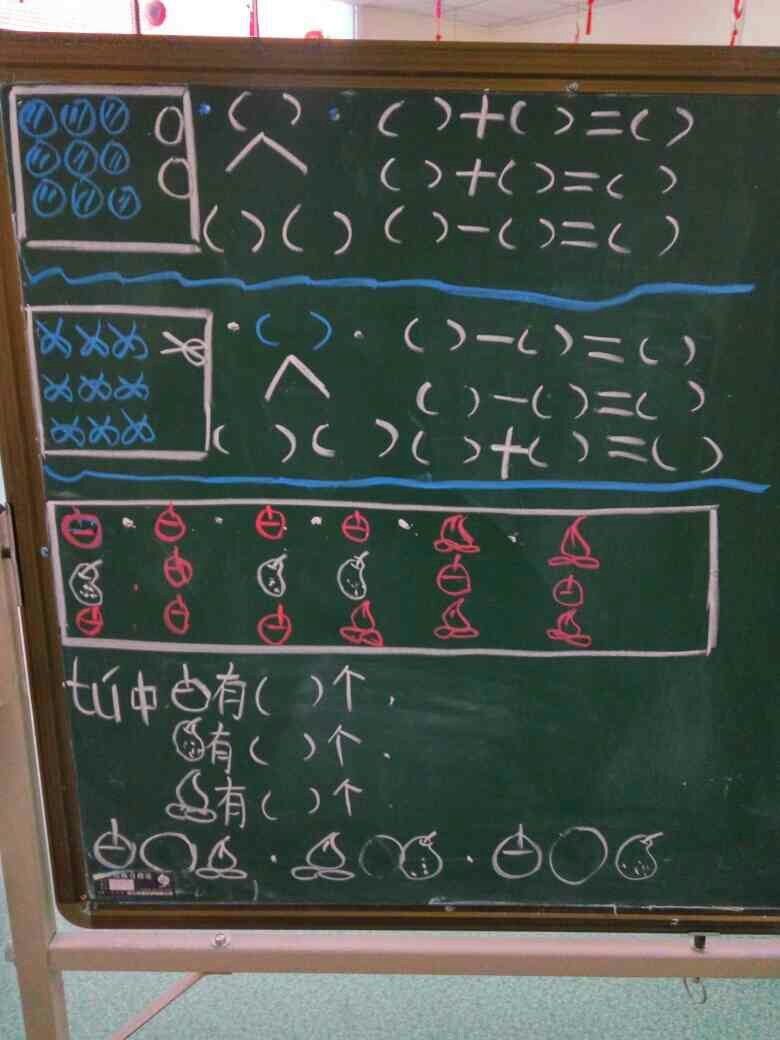 ( ) ( )+( )=( )
( )+( )=( )
( )( ) ( )-( )=( )
( ) ( )-( )=( )
( )-( )=( )
( )( ) ( )+( )=( )
tú中有( )个.
有( )个.
有( )个